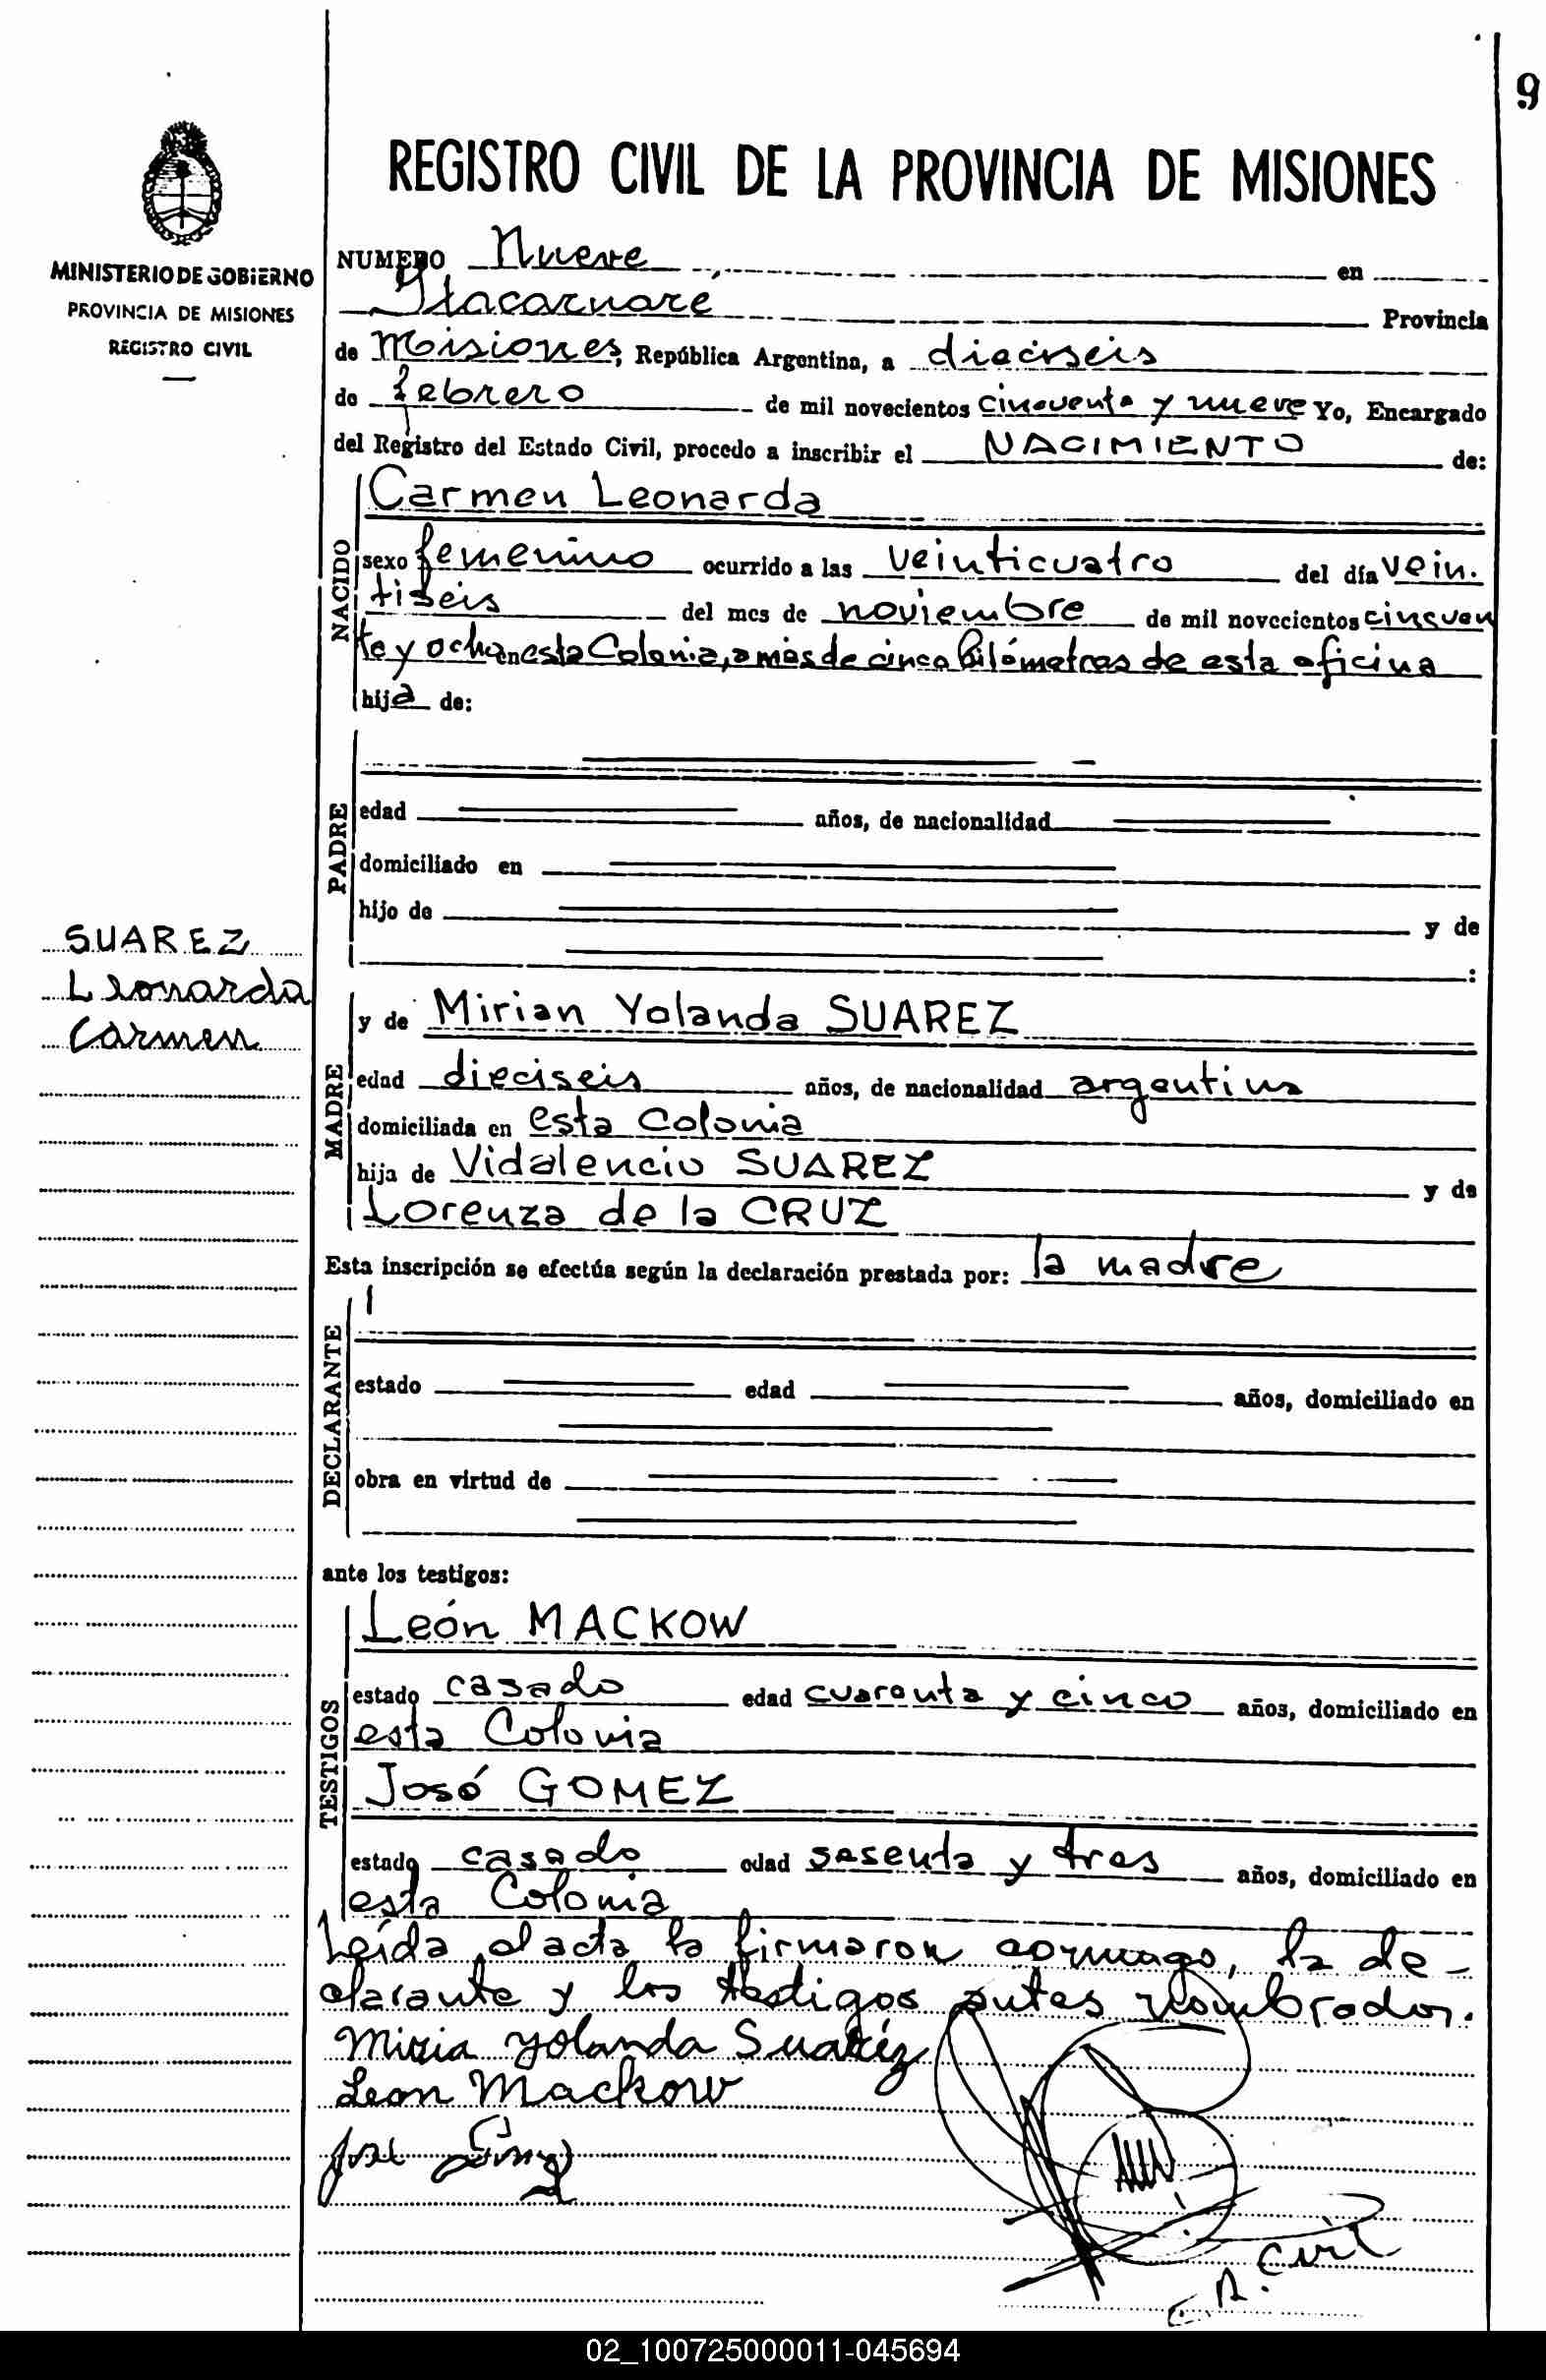 9
REGISTRO CIVIL DE LA PROVINCIA DE MISIONES
MINISTERIO DE GOBIERNO
PROVINCIA DE MISIONES
REGISTRO CIVIL
NUMERO Nueve en
Itacaruaré Provincia
de Misiones, República Argentina, a dieciseis
de febrero de mil novecientos cincuenta y nueve Yo, Encargado
del Registro del Estado Civil, procedo a inscribir el NACIMIENTO de:
NACIDO
Carmen Leonarda
sexo femenino ocurrido a las veinticuatro del día vein.
tiseis del mes de noviembre de mil novecientos cincuen
ta y ocho en esta Colonia, a más de cinco kilómetros de esta oficina
hija de:
PADRE
edad años, de nacionalidad
domiciliado en
hijo de y de
:
SUAREZ
Leonarda
Carmen
MADRE
y de Mirian Yolanda SUAREZ
edad dieciseis años, de nacionalidad argentina
domiciliada en esta Colonia
hija de Vidalencio SUAREZ y de
Lorenza de la CRUZ
Esta inscripción se efectúa según la declaración prestada por: la madre
DECLARANTE
estado edad años, domiciliado en
obra en virtud de
ante los testigos:
TESTIGOS
León MACKOW
estado casado edad cuarenta y cinco años, domiciliado en
esta Colonia
José GOMEZ
estado casado edad sesenta y tres años, domiciliado en
esta Colonia
Leída el acta la firmaron conmigo, la de-
clarante y los testigos antes nombrados.
Miria Yolanda Suaréz
Leon Mackow
José
E. R. Civil
02_100725000011-045694